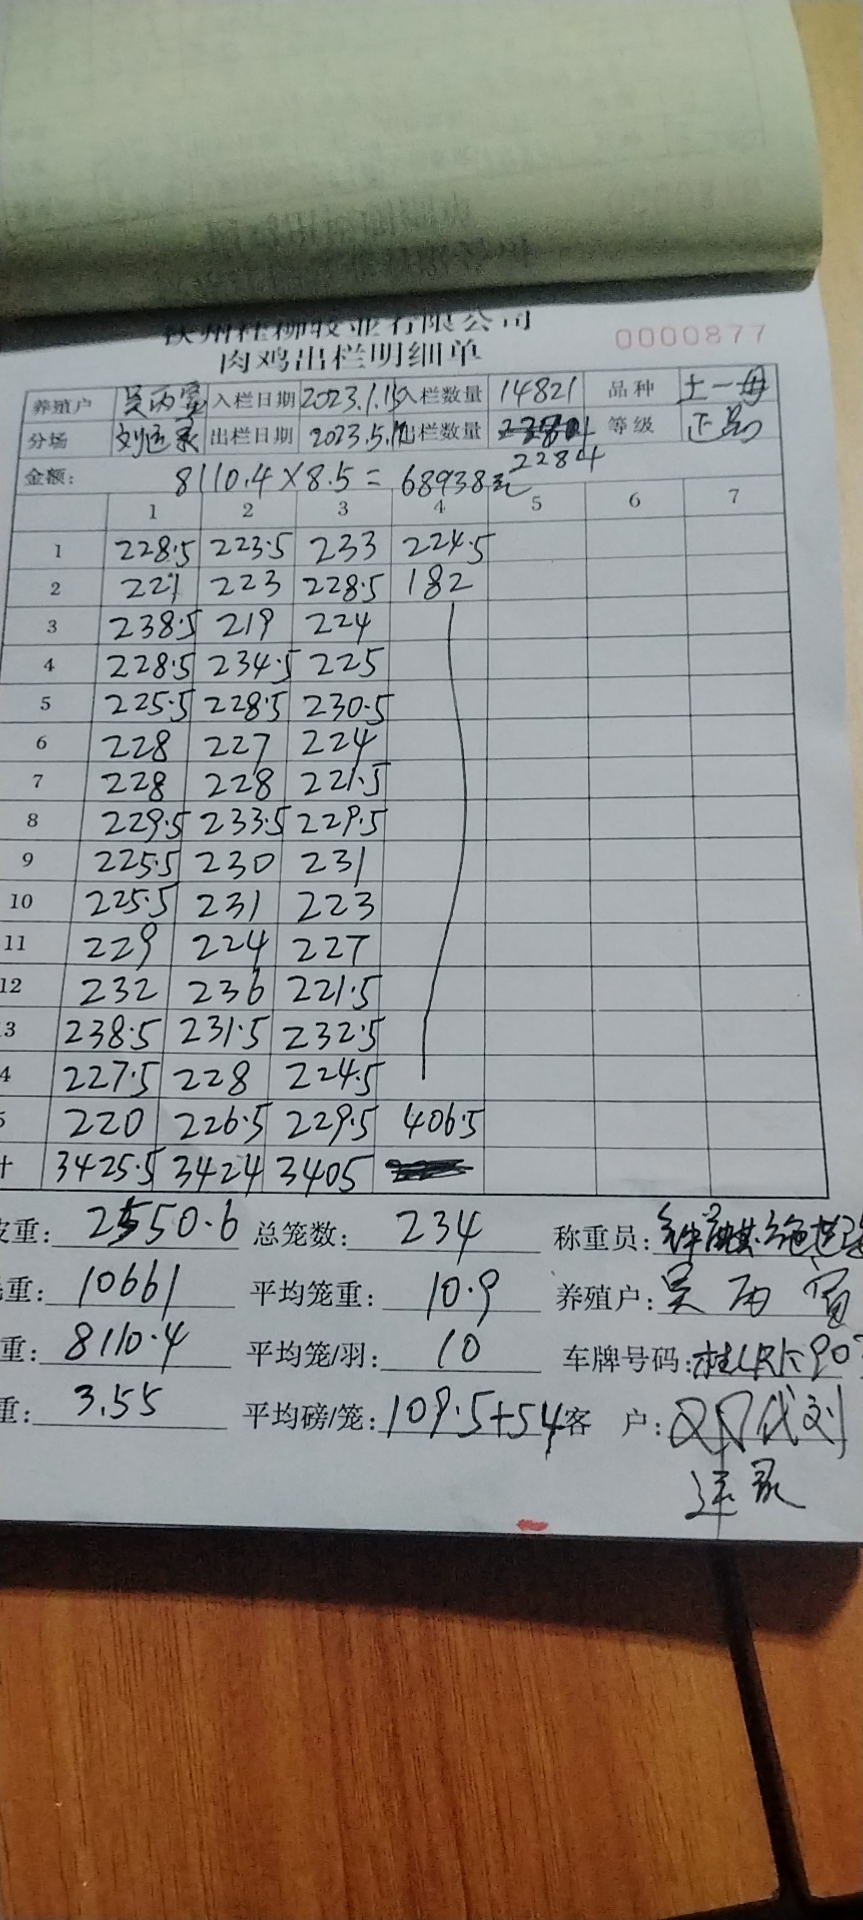 钦州桂柳牧业有限公司
肉鸡出栏明细单 0000877
养殖户 吴丙富 入栏日期 2023.1.15 入栏数量 14821 品种 土一母
分场 刘运录 出栏日期 2023.5.17 出栏数量 等级 正品
2284
金额: 8110.4×8.5=68938元
1 2 3 4 5 6 7
1 228.5 223.5 233 224.5
2 221 223 228.5 182
3 238.5 219 224
4 228.5 234.5 225
5 225.5 228.5 230.5
6 228 227 224
7 228 228 221.5
8 229.5 233.5 229.5
9 225.5 230 231
10 225.5 231 223
11 229 224 227
12 232 236 221.5
3 238.5 231.5 232.5
4 227.5 228 224.5
5 220 226.5 229.5 406.5
计 3425.5 3424 3405
皮重: 2550.6 总笼数: 234 称重员:
毛重: 10661 平均笼重: 10.9 养殖户: 吴丙富
重: 8110.4 平均笼/羽: 10 车牌号码: 桂LRK907
重: 3.55 平均磅/笼: 109.5+54 客户: 代刘
运录